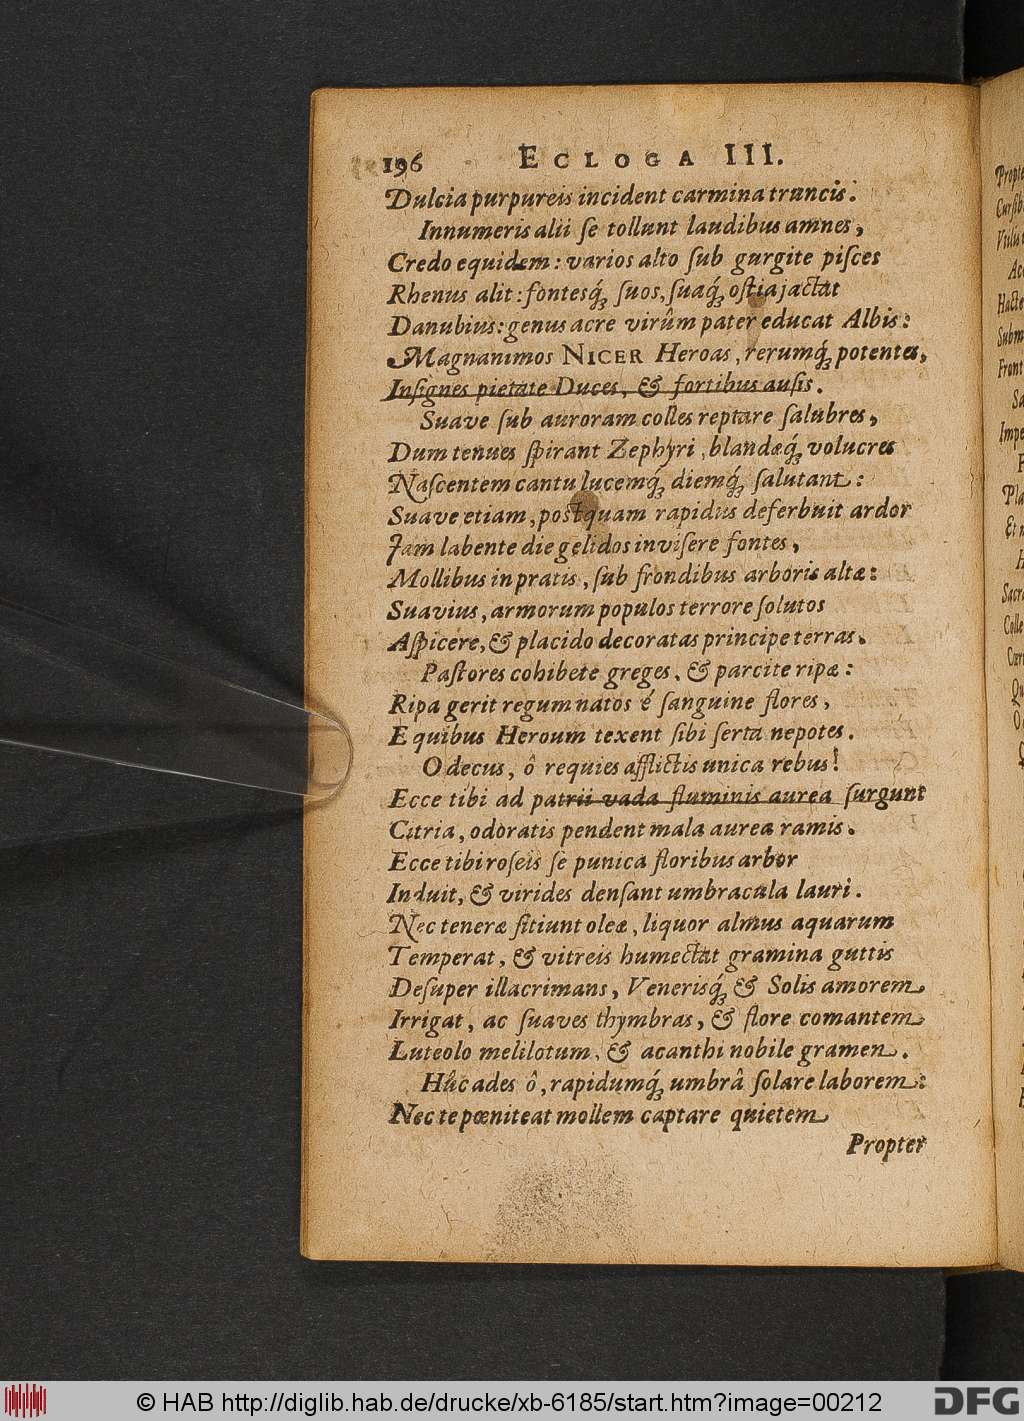 196 ECLOGA III.
Dulcia purpureis incident carmina truncis.
Innumeris alii ſe tollunt laudibus amnes,
Credo equidem: varios alto ſub gurgite piſces
Rhenus alit: fontesq́ꝫ ſuos, ſuaq́ꝫ oſtia jactat
Danubius: genus acre virûm pater educat Albis:
Magnanimos NICER Heroas, rerumq́ꝫ potentes,
Inſignes pietate Duces, & fortibus auſis.
Suave ſub auroram colles reptare ſalubres,
Dum tenues ſpirant Zephyri, blandæq́ꝫ volucres
Naſcentem cantu lucemq́ꝫ diemq́ꝫ ſalutant:
Suave etiam, postquam rapidus deferbuit ardor
Jam labente die gelidos inviſere fontes,
Mollibus in pratis, ſub frondibus arboris altæ:
Suavius, armorum populos terrore ſolutos
Aſpicere, & placido decoratas principe terras.
Paſtores cohibete greges, & parcite ripæ:
Ripa gerit regum natos é ſanguine flores,
E quibus Heroum texent ſibi ſerta nepotes.
O decus, ô requies afflictis unica rebus!
Ecce tibi ad patrii vada fluminis aurea ſurgunt
Citria, odoratis pendent mala aurea ramis.
Ecce tibi roſeis ſe punica floribus arbor
Induit, & virides denſant umbracula lauri.
Nec teneræ ſitiunt oleæ, liquor almus aquarum
Temperat, & vitreis humectat gramina guttis
Deſuper illacrimans, Venerisq́ꝫ & Solis amorem
Irrigat, ac ſuaves thymbras, & flore comantem
Luteolo melilotum, & acanthi nobile gramen.
Hûc ades ô, rapidumq́ꝫ umbrâ ſolare laborem:
Nec te pœniteat mollem captare quietem
Propter
© HAB http://diglib.hab.de/drucke/xb-6185/start.htm?image=00212
DFG